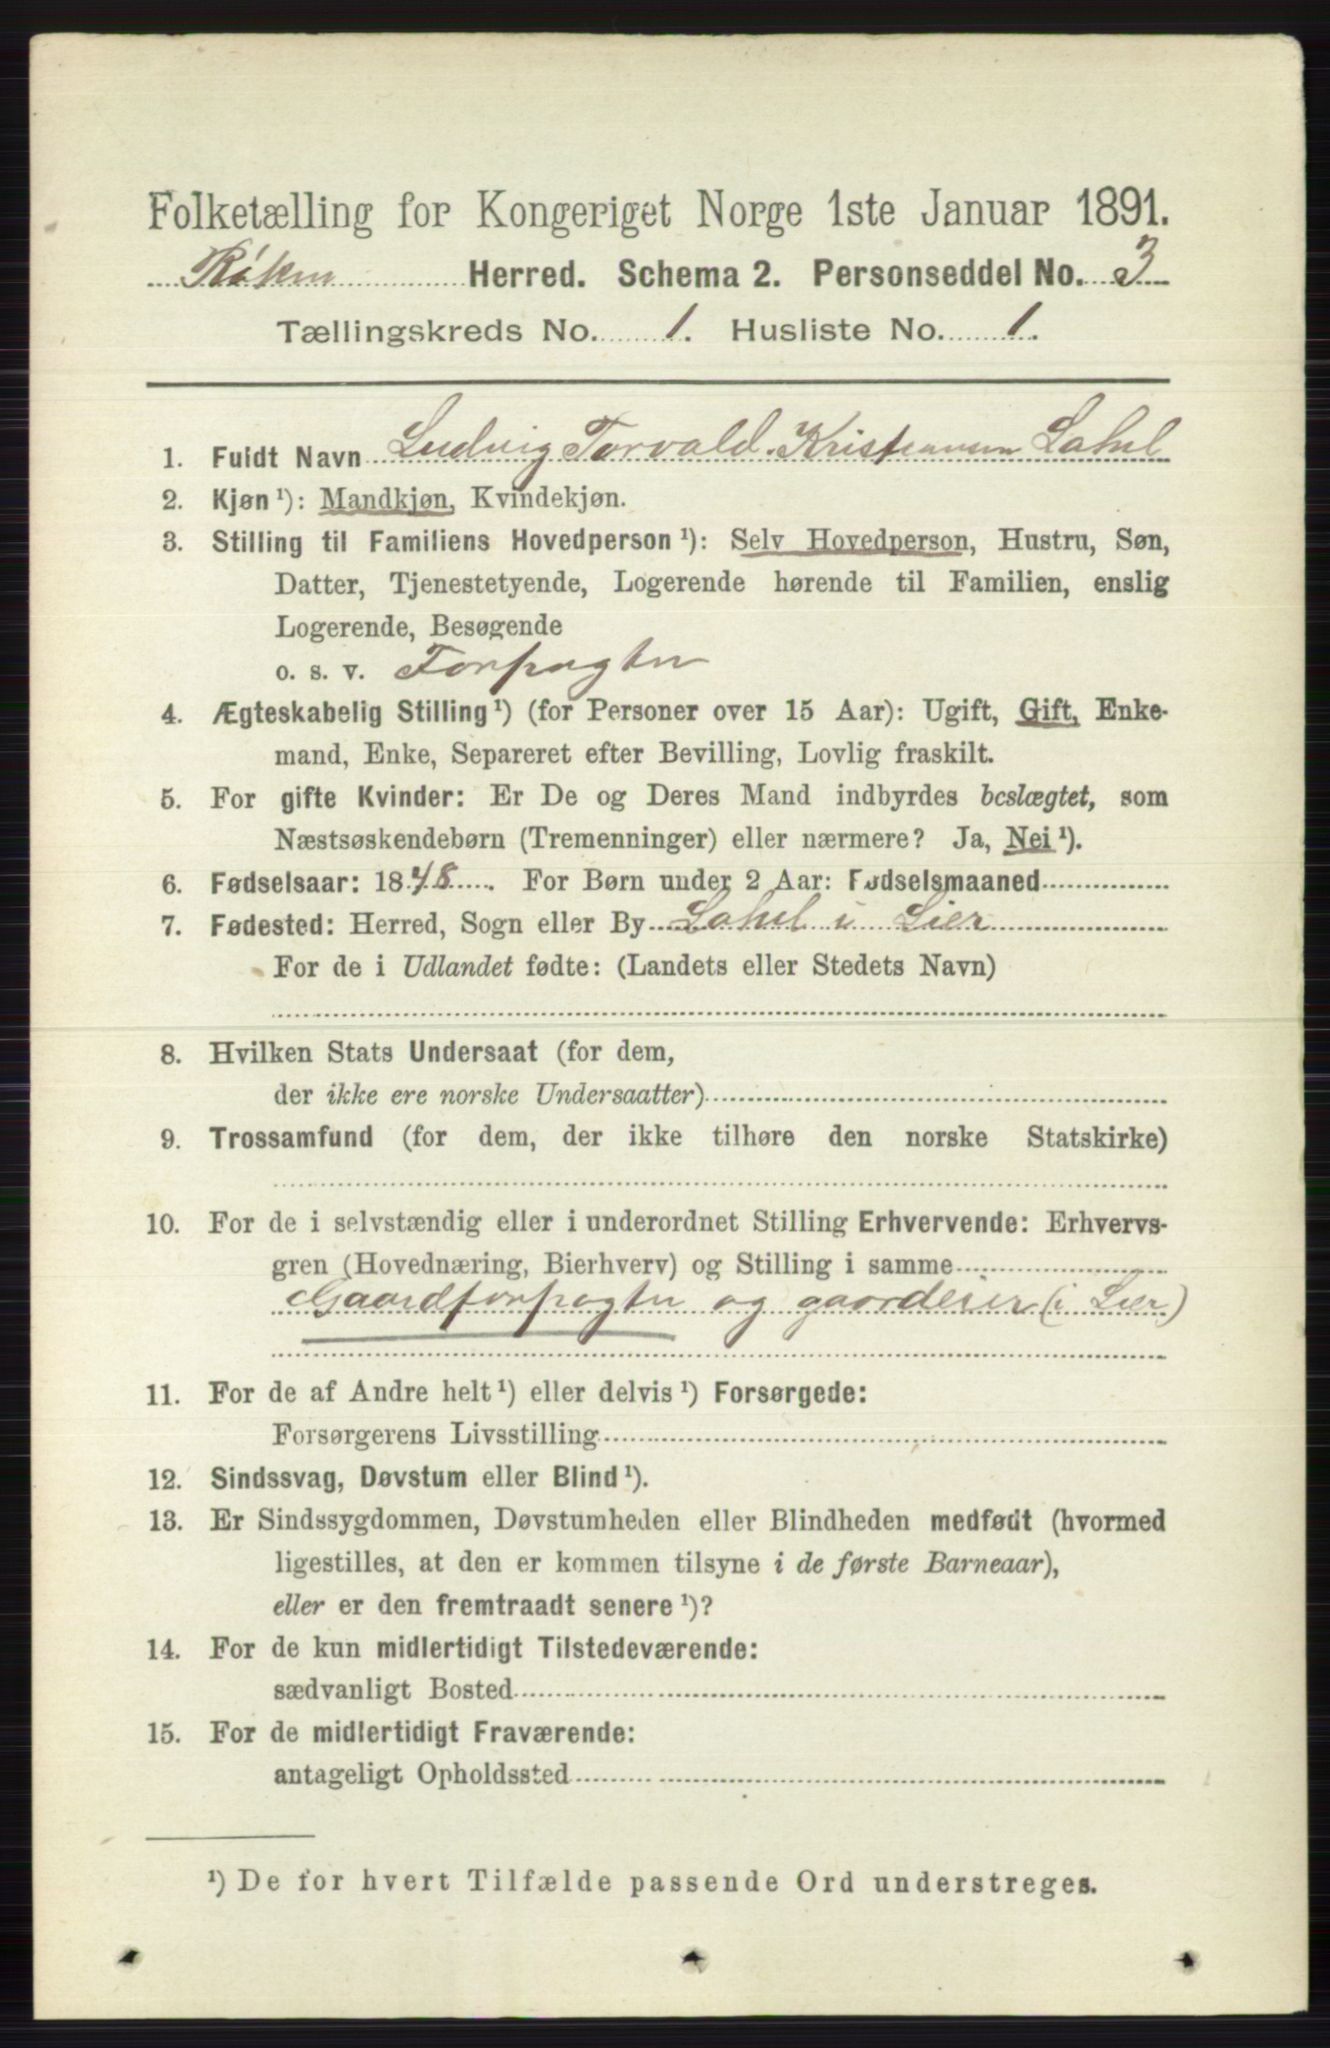 Folketælling for Kongeriget Norge 1ste Januar 1891.
Røken Herred. Schema 2. Personseddel No. 3
Tællingskreds No. 1. Husliste No. 1.
1. Fuldt Navn Ludvig Torvald Kristiansen Lahel
2. Kjøn ¹): Mandkjøn, Kvindekjøn.
3. Stilling til Familiens Hovedperson ¹): Selv Hovedperson, Hustru, Søn,
Datter, Tjenestetyende, Logerende hørende til Familien, enslig
Logerende, Besøgende
o. s. v. Forpagter
4. Ægteskabelig Stilling ¹) (for Personer over 15 Aar): Ugift, Gift, Enke-
mand, Enke, Separeret efter Bevilling, Lovlig fraskilt.
5. For gifte Kvinder: Er De og Deres Mand indbyrdes beslægtet, som
Næstsøskendebørn (Tremenninger) eller nærmere? Ja, Nei ¹).
6. Fødselsaar: 1848. For Børn under 2 Aar: Fødselsmaaned
7. Fødested: Herred, Sogn eller By Lahel i Lier
For de i Udlandet fødte: (Landets eller Stedets Navn)
8. Hvilken Stats Undersaat (for dem,
der ikke ere norske Undersaatter)
9. Trossamfund (for dem, der ikke tilhøre den norske Statskirke)
10. For de i selvstændig eller i underordnet Stilling Erhvervende: Erhvervs-
gren (Hovednæring, Bierhverv) og Stilling i samme
Gaardforpagter og gaardeier (i Lier)
11. For de af Andre helt ¹) eller delvis ¹) Forsørgede:
Forsørgerens Livsstilling
12. Sindssvag, Døvstum eller Blind ¹).
13. Er Sindssygdommen, Døvstumheden eller Blindheden medfødt (hvormed
ligestilles, at den er kommen tilsyne i de første Barneaar),
eller er den fremtraadt senere ¹)?
14. For de kun midlertidigt Tilstedeværende:
sædvanligt Bosted
15. For de midlertidigt Fraværende:
antageligt Opholdssted
¹) De for hvert Tilfælde passende Ord understreges.